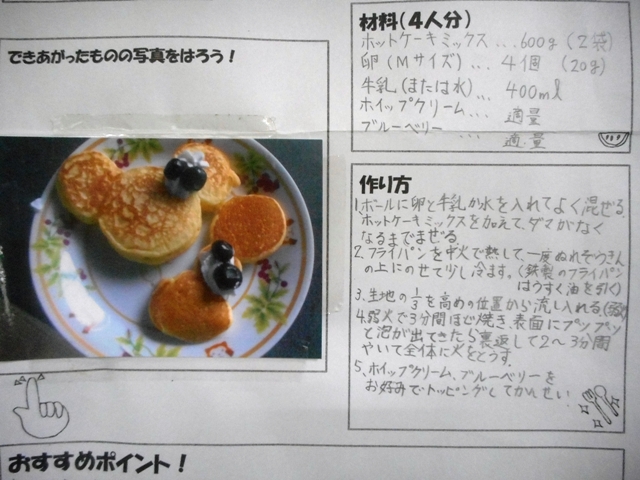 できあがったものの写真をはろう！
材料(4人分)
ホットケーキミックス...600g(2袋)
卵(Mサイズ)... 4個 (20g)
牛乳(または水)... 400ml
ホイップクリーム... 適量
ブルーベリー ... 適量
作り方
1.ボールに卵と牛乳か水を入れてよく混ぜる。
ホットケーキミックスを加えて、ダマがなく
なるまでまぜる。
2.フライパンを中火で熱して、一度ぬれぞうきん
の上にのせて少し冷ます。(鉄製のフライパン
はうすく油を引く)
3.生地の1/3を高めの位置から流し入れる(弱火)
4.弱火で3分間ほど焼き、表面にプツプツ
と泡が出てきたら裏返して2～3分間
やいて全体に火をとうす。
5.ホイップクリーム、ブルーベリーを
お好みでトッピングしてかんせい
おすすめポイント！